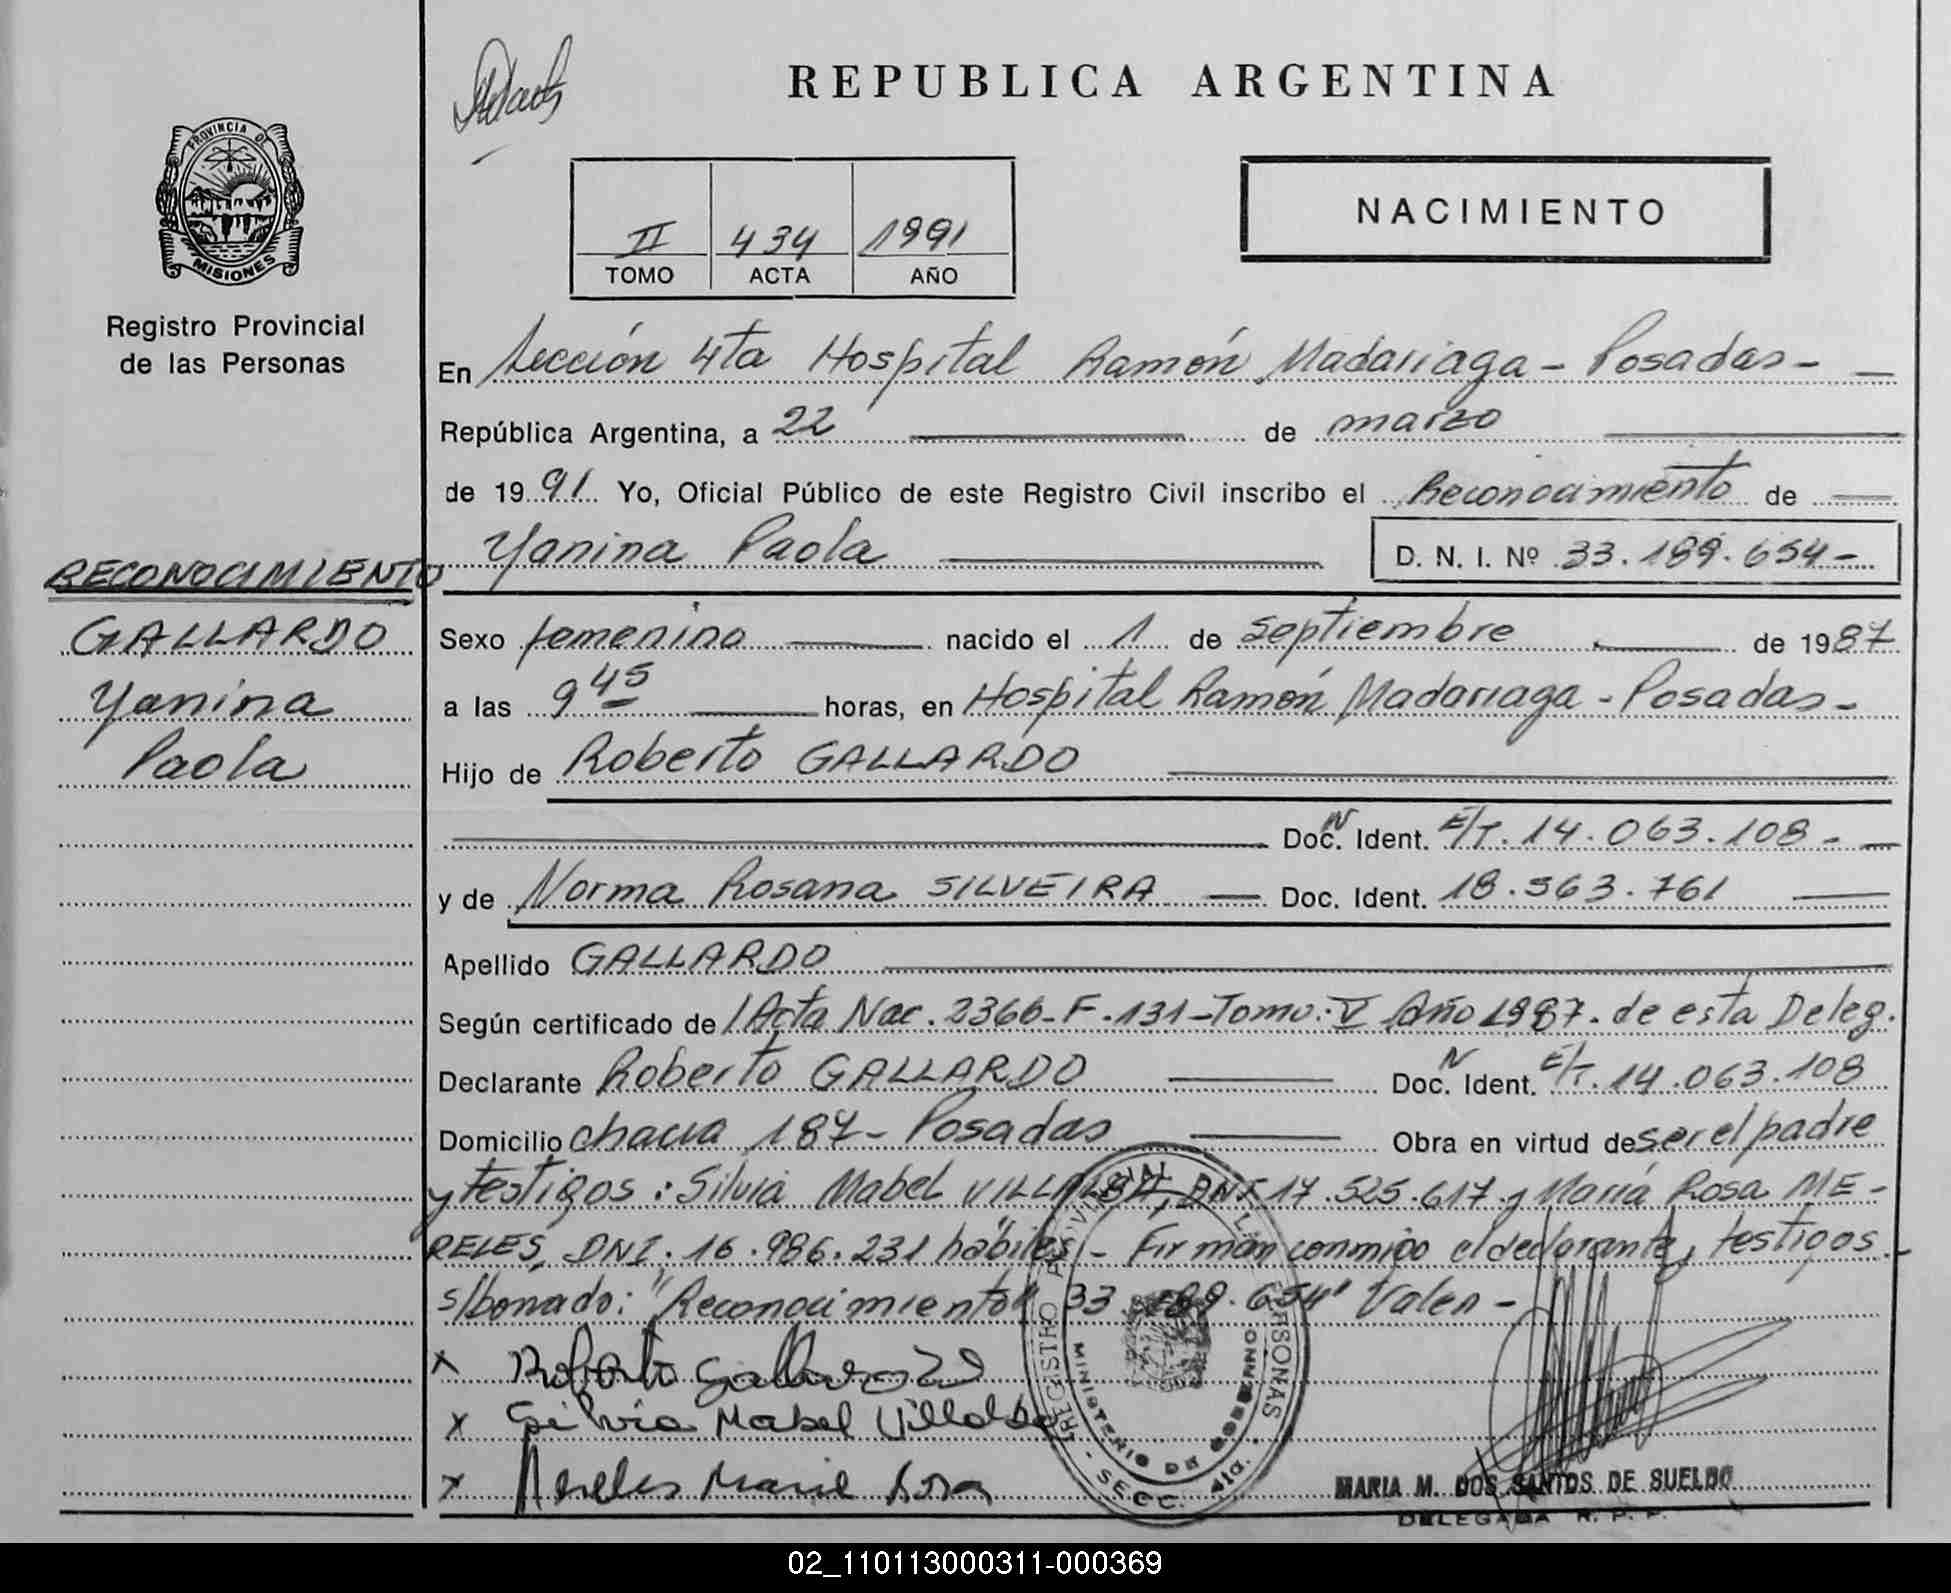 REPUBLICA ARGENTINA
PROVINCIA DE
MISIONES
Registro Provincial
de las Personas
II 434 1991
TOMO ACTA AÑO
NACIMIENTO
En Sección 4ta Hospital Ramón Madariaga - Posadas -
República Argentina, a 22 de marzo
de 1991 Yo, Oficial Público de este Registro Civil inscribo el Reconocimiento de
Yanina Paola D. N. I. Nº 33.189.654-
RECONOCIMIENTO
GALLARDO
Yanina
Paola
Sexo femenino nacido el 1 de septiembre de 1987
a las 9 45 horas, en Hospital Ramón Madariaga - Posadas -
Hijo de Roberto GALLARDO
Doc. Ident. E/T. 14.063.108 -
y de Norma Rosana SILVEIRA Doc. Ident. 18.563.761
Apellido GALLARDO
Según certificado de Acta Nac. 2366-F.131-Tomo: V Año 1987. de esta Deleg.
Declarante Roberto GALLARDO Doc. Ident. E/T. 14.063.108
Domicilio chacra 187 - Posadas Obra en virtud de ser el padre
y testigos: Silvia Mabel VILLALBA, DNI 17.525.617 y María Rosa ME-
RELES, DNI. 16.986.231 hábiles - Firman conmigo el declarante y testigos -
s/bonado: "Reconocimiento" 33.189.654" Valen -
x Roberto Gallardo
x Silvia Mabel Villalba
x Mereles Maria Rosa
REGISTRO PROVINCIAL DE LAS PERSONAS
MINISTERIO DE GOBIERNO
- SECC. 4ta. -
MARIA M. DOS SANTOS DE SUELDO
DELEGADA R. P. P.
02_110113000311-000369